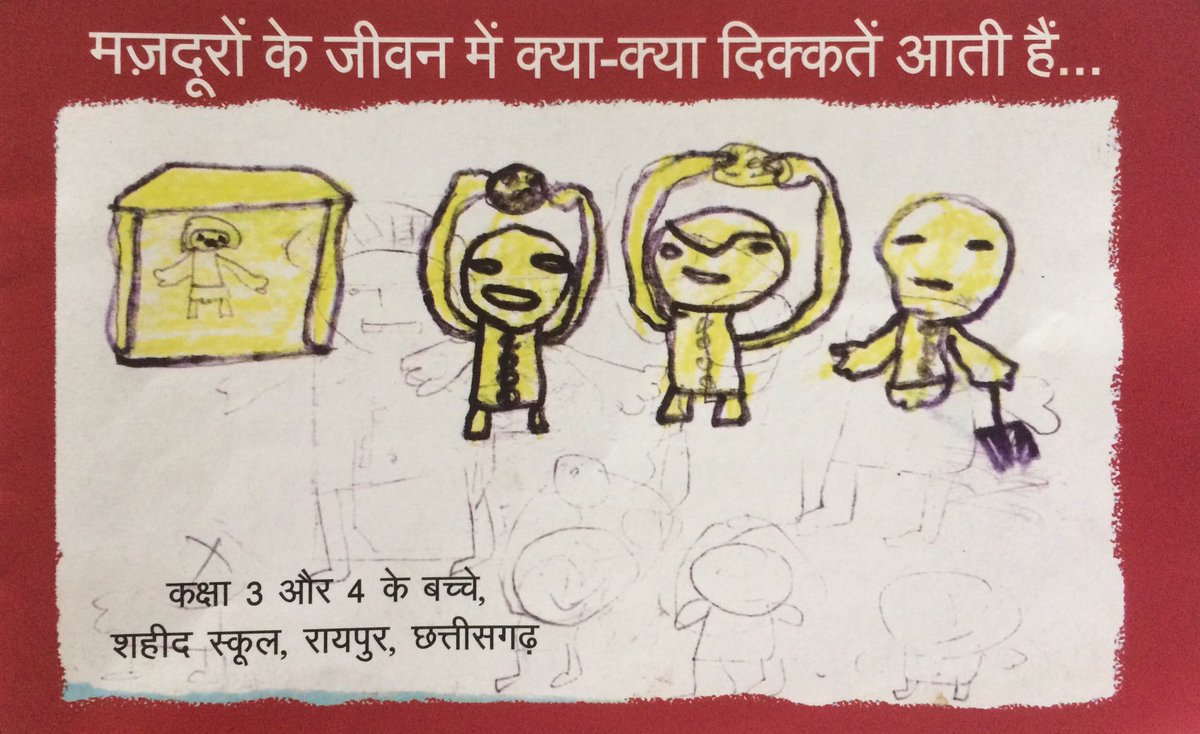 मज़दूरों के जीवन में क्या-क्या दिक्कतें आती हैं...
कक्षा 3 और 4 के बच्चे,
शहीद स्कूल, रायपुर, छत्तीसगढ़